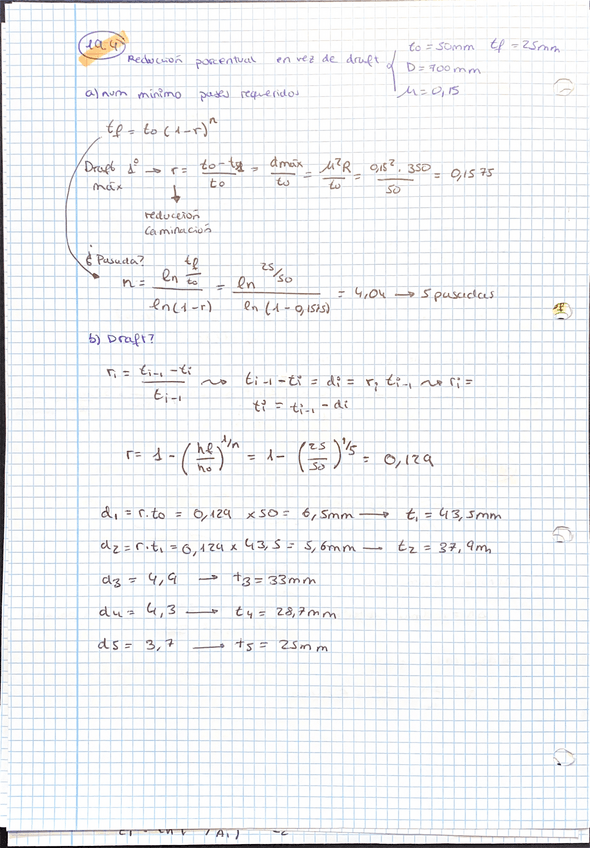 19.4
Reducción porcentual en vez de draft
t₀ = 50mm tf = 25mm
D = 700mm
μ = 0,15
a) num mínimo pases requeridos
tf = t₀ (1-r)ⁿ
Draft 1º → r = (t₀ - tf)/t₀ = dmáx/t₀ = μ²R/t₀ = 0,15² · 350/50 = 0,1575
máx
reducción
laminación
¿Pasada?
n = ln (tf/t₀)/ln(1-r) = ln 25/50/ln (1-0,1575) = 4,04 → 5 pasadas
b) Draft?
rᵢ = (tᵢ₋₁ - tᵢ)/tᵢ₋₁ ⇝ tᵢ₋₁ - tᵢ = dᵢ = rᵢ tᵢ₋₁ ⇝ rᵢ =
tᵢ = tᵢ₋₁ - dᵢ
r = 1 - (hf/h₀)^1/n = 1 - (25/50)^1/5 = 0,129
d₁ = r·t₀ = 0,129 × 50 = 6,5mm → t₁ = 43,5mm
d₂ = r·t₁ = 0,129 × 43,5 = 5,6mm → t₂ = 37,9m
d₃ = 4,9 → t₃ = 33mm
d₄ = 4,3 → t₄ = 28,7mm
d₅ = 3,7 → t₅ = 25mm